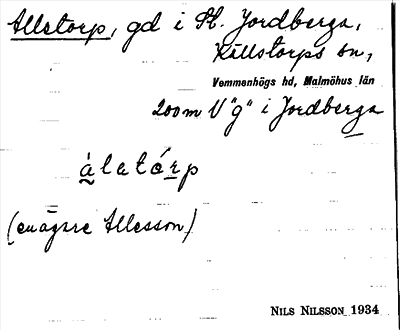 Allstorp, gd i St. Jordberga,
Källstorps sn,
Vemmenhögs hd, Malmöhus län
200 m V "g" i Jordberga
álstórp
(en ägare Allesson)
NILS NILSSON 1934